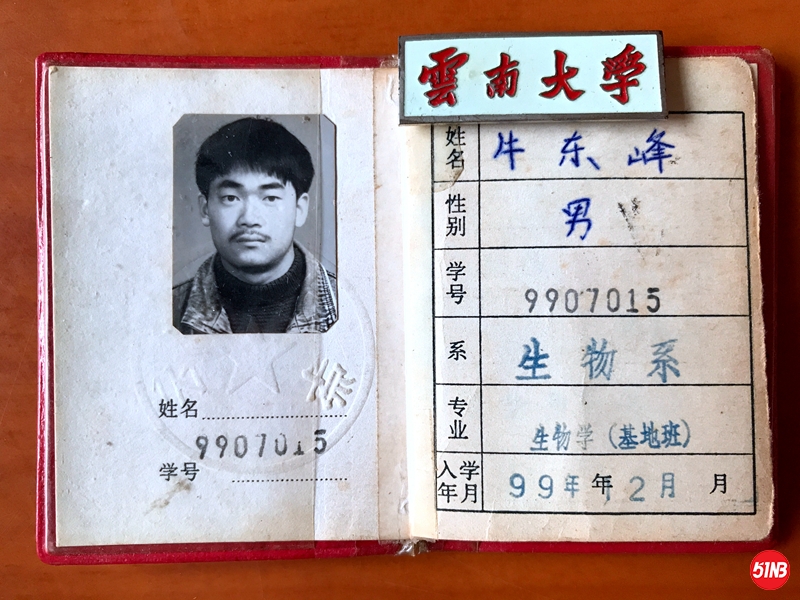 雲南大学
姓名
9907015
学号
姓名 牛东峰
性别 男
学号 9907015
系 生物系
专业 生物学(基地班)
入学年月 99年 年 12月 月
51NB